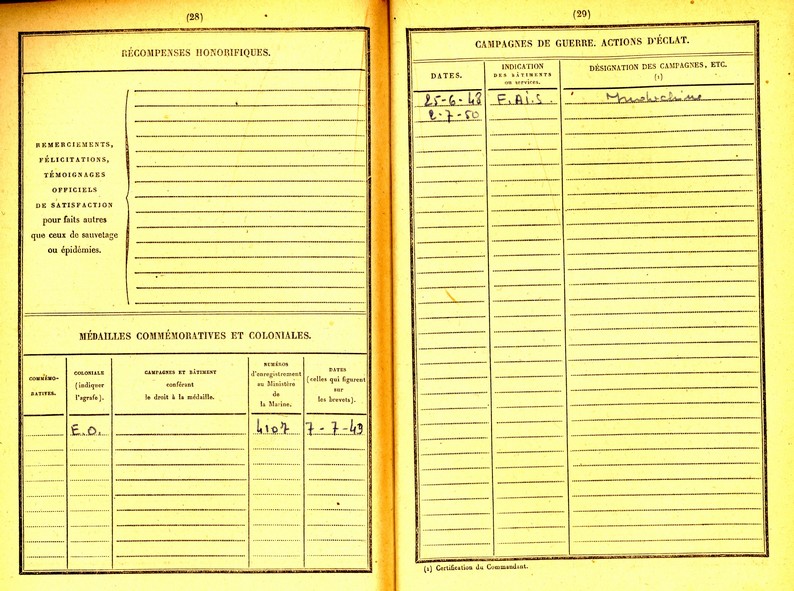 (28)
RÉCOMPENSES HONORIFIQUES.
REMERCIEMENTS,
FÉLICITATIONS,
TÉMOIGNAGES
OFFICIELS
DE SATISFACTION
pour faits autres
que ceux de sauvetage
ou épidémies.
MÉDAILLES COMMÉMORATIVES ET COLONIALES.
COMMÉMO-
RATIVES.
COLONIALE
(indiquer
l'agrafe).
CAMPAGNES ET BÂTIMENT
conférant
le droit à la médaille.
NUMÉROS
d'enregistrement
au Ministère
de
la Marine.
DATES
(celles qui figurent
sur
les brevets).
E.O. 4107 7-7-49
(29)
CAMPAGNES DE GUERRE. ACTIONS D'ÉCLAT.
DATES.
INDICATION
DES BÂTIMENTS
ou services.
DÉSIGNATION DES CAMPAGNES, ETC.
(1)
25-6-48 F.Ai.S. Indochine
2-7-50
(1) Certification du Commandant.